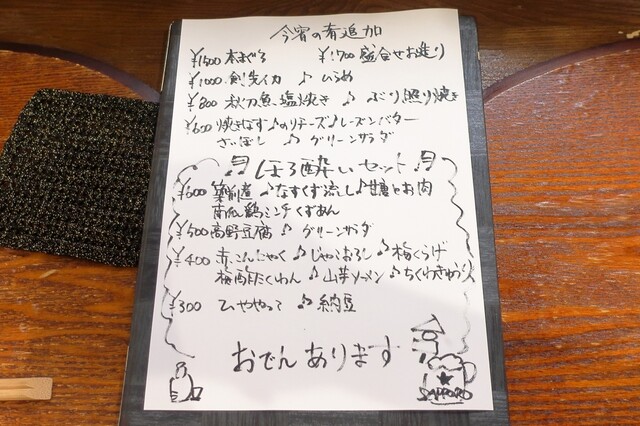 今宵の肴追加
¥1500 本まぐろ ¥1700 盛合せお造り
¥1000 剣先イカ ♪ ひらめ
¥800 秋刀魚塩焼き ♪ ぶり照り焼き
¥600 焼きなす♪のりチーズ♪レーズンバター
さいぼし ♪ グリーンサラダ
♬ ほろ酔いセット ♬
¥600 筑前煮♪なすくず流し♪甘唐とお肉
南瓜鶏ミンチくずあん
¥500 高野豆腐 ♪ グリーンサラダ
¥400 赤こんにゃく ♪ じゃこおろし ♪ 梅くらげ
梅酢たくわん ♪ 山芋ソーメン ♪ ちくわきゅうり
¥300 ひややっこ ♪ 納豆
おでんあります
SAPPORO